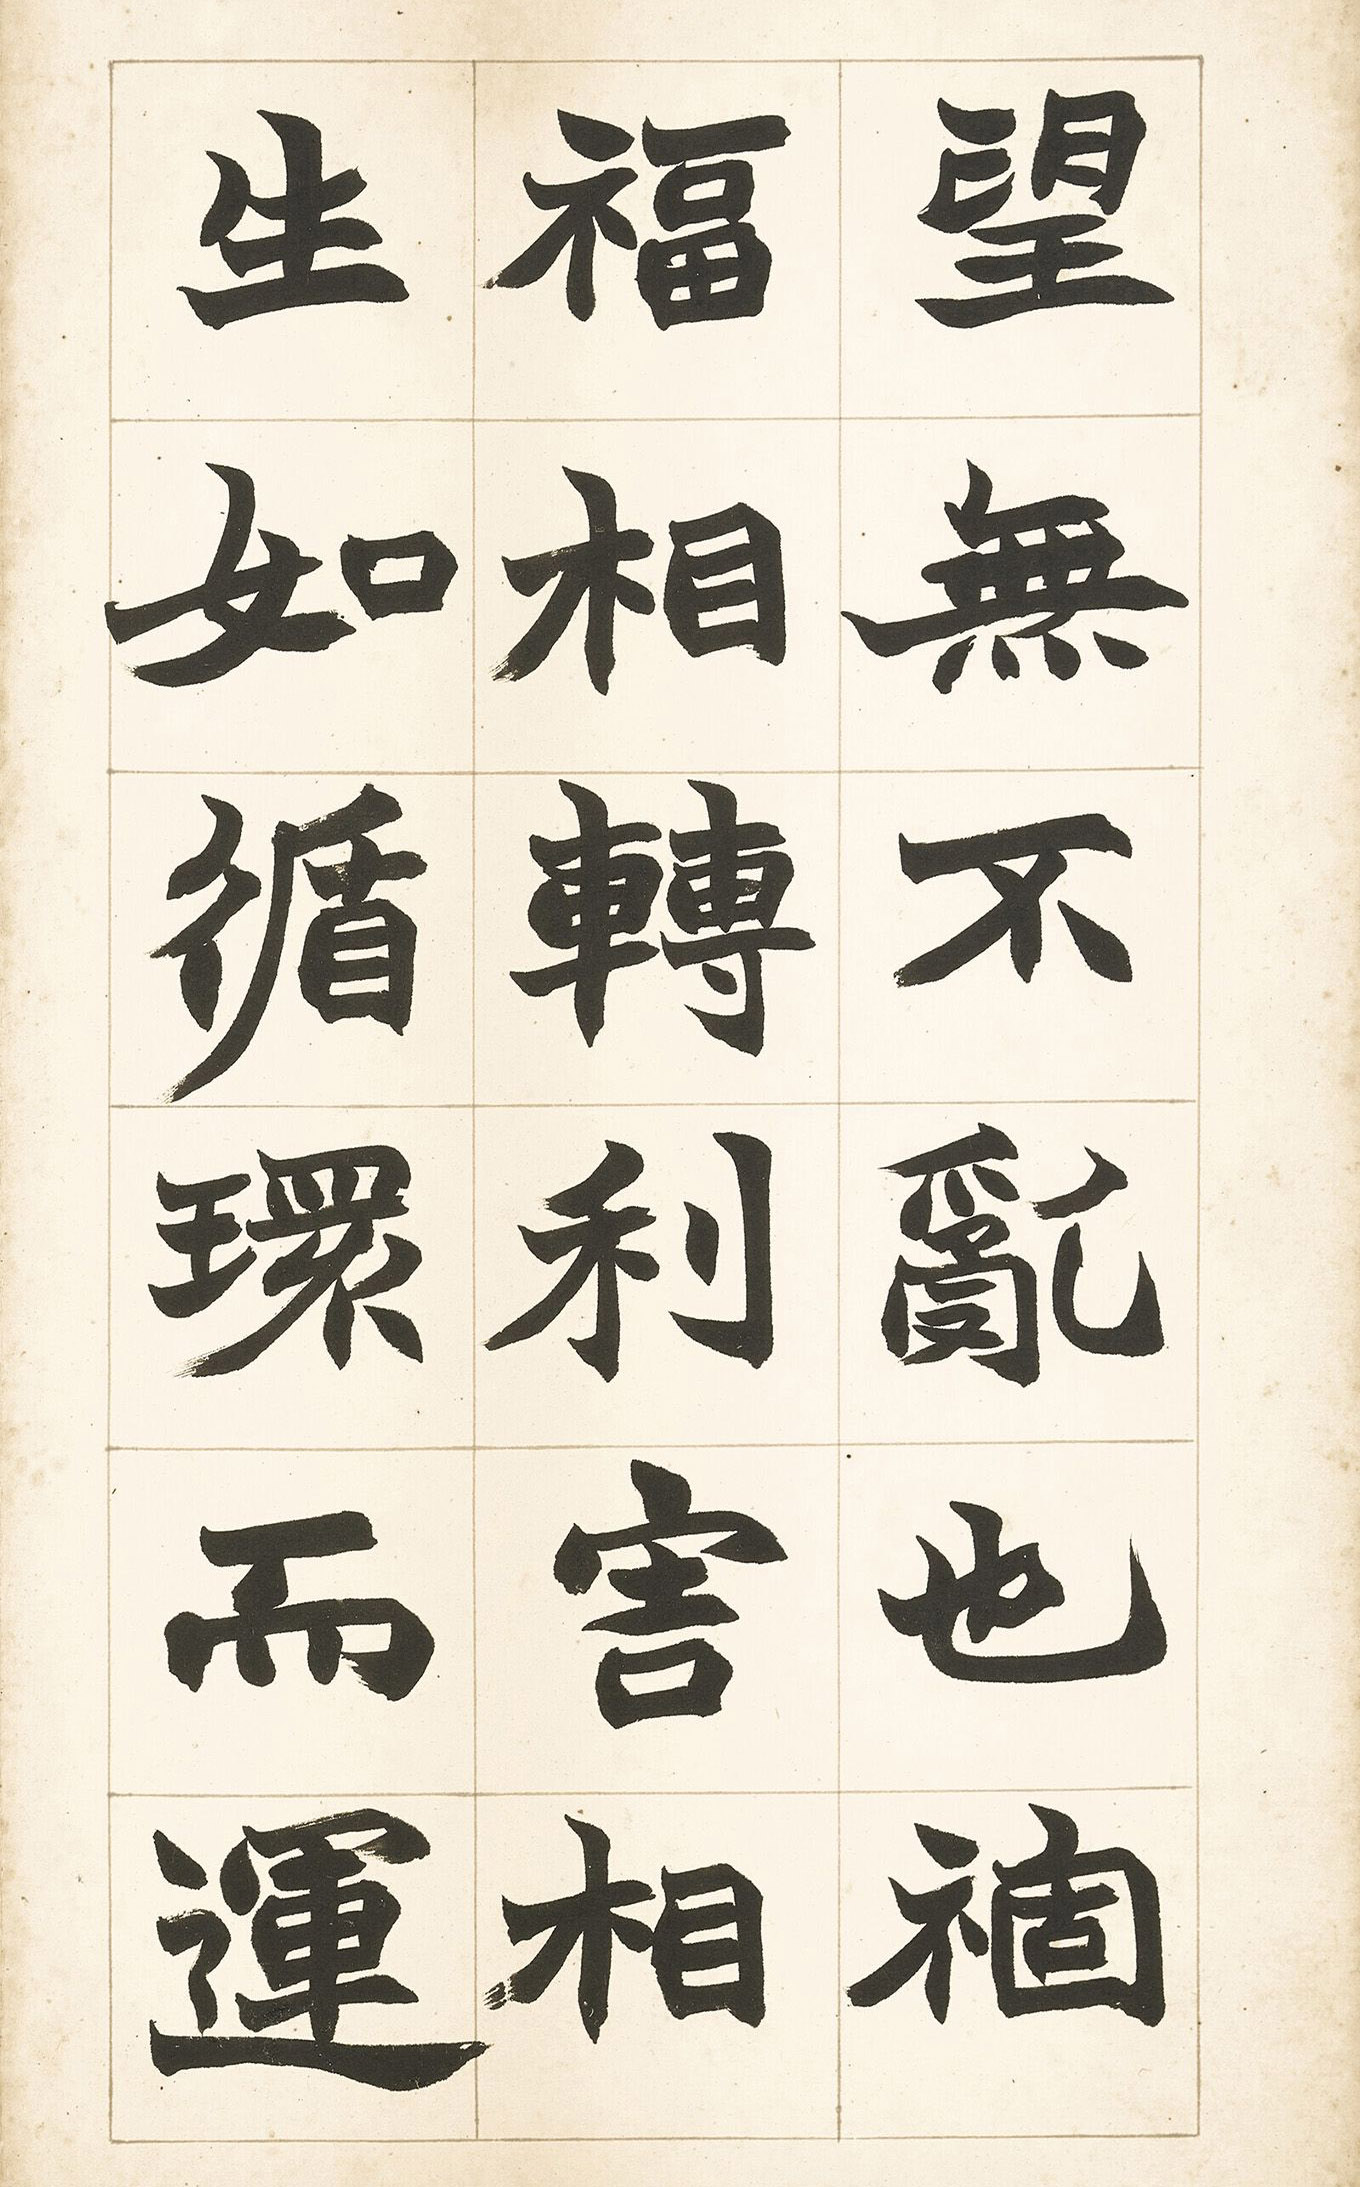 望無不亂也禍
福相轉利害相
生如循環而運